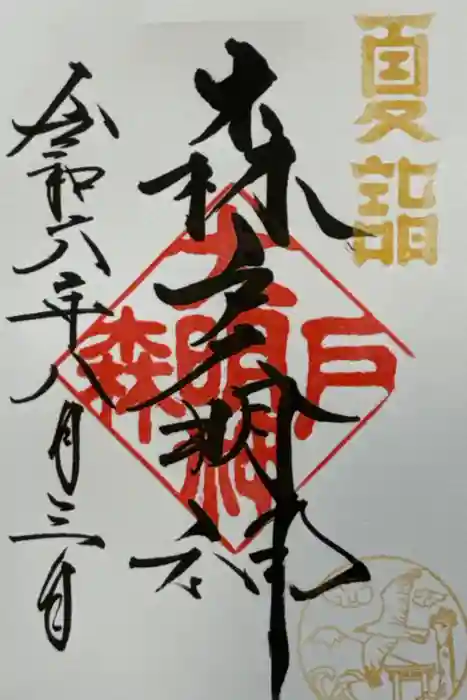 夏詣
森戸明神
森戸大明神
令和六年八月三日